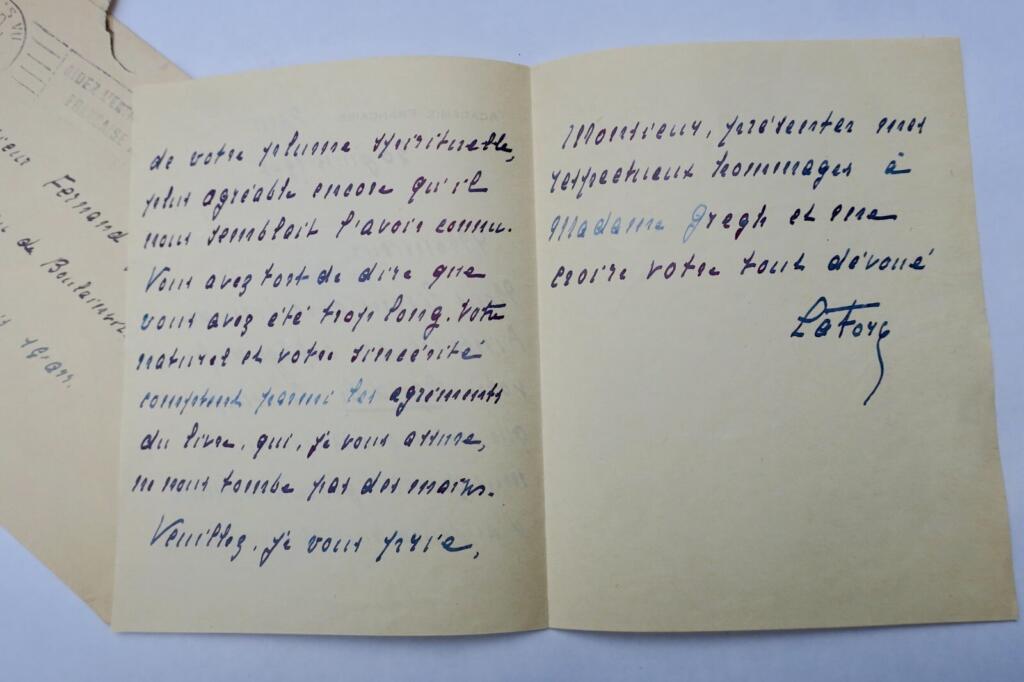 AIDEZ
FRANÇAISE
Fernand
de Boulainvil
Paris
ACADÉMIE FRANÇAISE
de votre plume spirituelle,
plus agréable encore qu'il
nous semblait l'avoir connu.
Vous avez tort de dire que
vous avez été trop long. Votre
naturel et votre sincérité
comptent parmi les agréments
du livre, qui, je vous assure,
ne nous tombe pas des mains.
Veuillez, je vous prie,
Monsieur, présenter mes
respectueux hommages à
Madame Gregh et me
croire votre tout dévoué
La Force